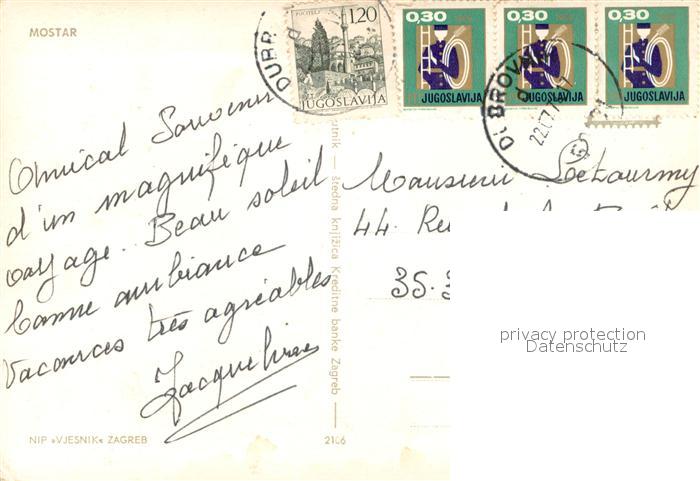 MOSTAR
POČITELJ
1,20
JUGOSLAVIJA
0,30
JUGOSLAVIJA
0,30
JUGOSLAVIJA
0,30
JUGOSLAVIJA
DUBR
DUBROVNIK
Amical Souvenir
d'un magnifique
voyage. Beau soleil
bonne ambiance
Vacances très agréables
Jacqueline
Monsieur Letourmy
44. Rue
35.
štedna knjižica Kreditne banke Zagreb
NIP »VJESNIK« ZAGREB
2106
privacy protection
Datenschutz